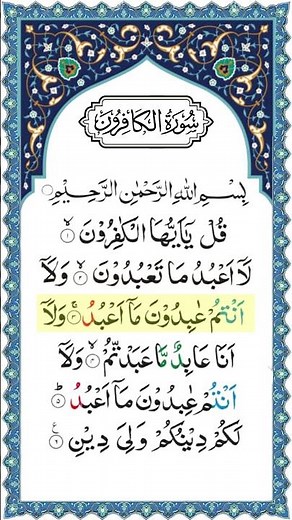 سُورَةُ الْكَافِرُونَ
بِسْمِ اللهِ الرَّحْمٰنِ الرَّحِيْمِ
قُلْ يٰۤاَيُّهَا الْكٰفِرُوْنَ ۙ۱
لَاۤ اَعْبُدُ مَا تَعْبُدُوْنَ ۙ۲ وَلَاۤ
اَنْتُمْ عٰبِدُوْنَ مَاۤ اَعْبُدُ ۚ۳ وَلَاۤ
اَنَا عَابِدٌ مَّا عَبَدْتُّمْ ۙ۴ وَلَاۤ
اَنْتُمْ عٰبِدُوْنَ مَاۤ اَعْبُدُ ؕ۵
لَكُمْ دِيْنُكُمْ وَلِيَ دِيْنِ ۶ ع